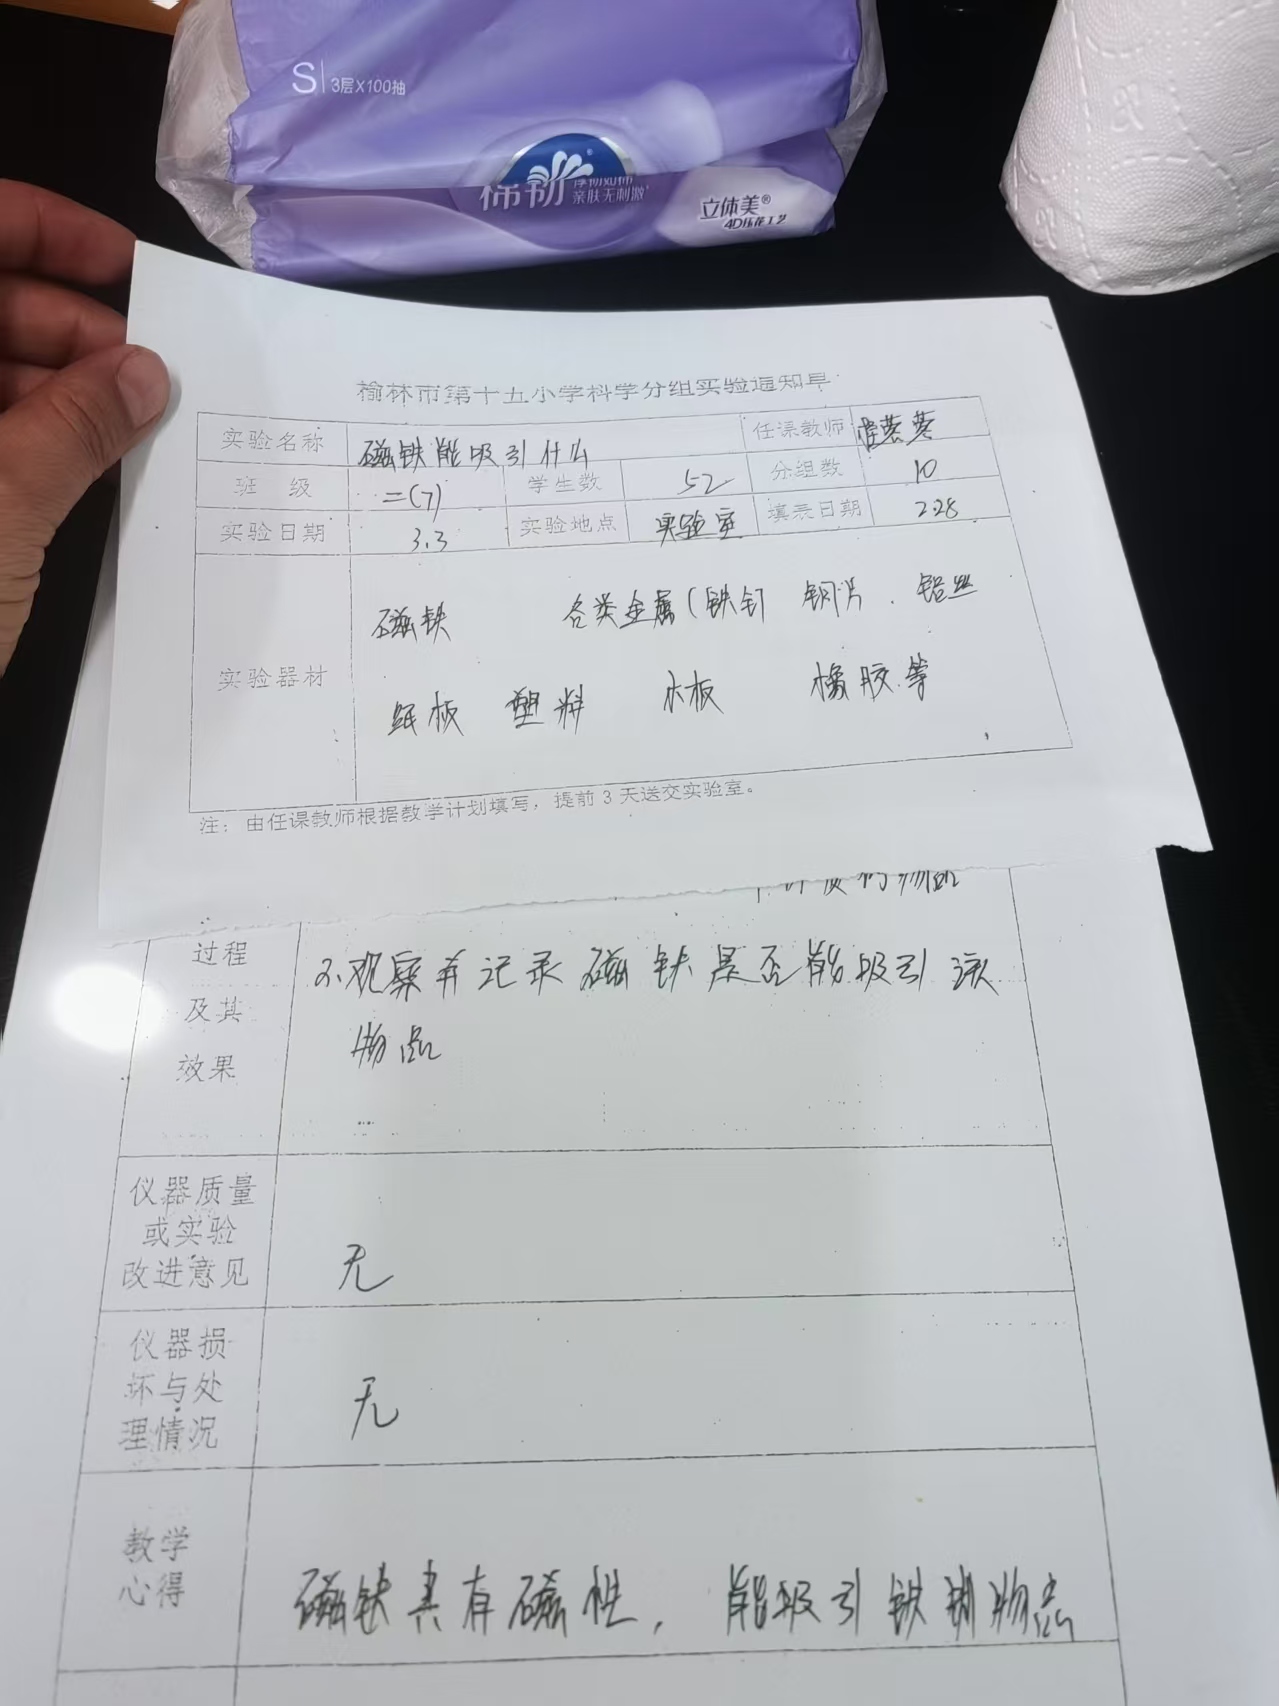 S 3层X100抽
棉韧
亲肤无刺激
立体美®
4D压花工艺
榆林市第十五小学科学分组实验通知单
实验名称 磁铁能吸引什么 任课教师
班 级 二(7) 学生数 52 分组数 10
实验日期 3.3 实验地点 实验室 填表日期 2.28
磁铁 各类金属(铁钉 铜片. 铝丝
实验器材
纸板 塑料 木板 橡胶等
注: 由任课教师根据教学计划填写, 提前 3 天送交实验室。
过程
及其
效果
观察并记录磁铁是否能吸引该
物品
仪器质量
或实验
改进意见
无
仪器损
坏与处
理情况
无
教学
心得
磁铁具有磁性, 能吸引铁制物品